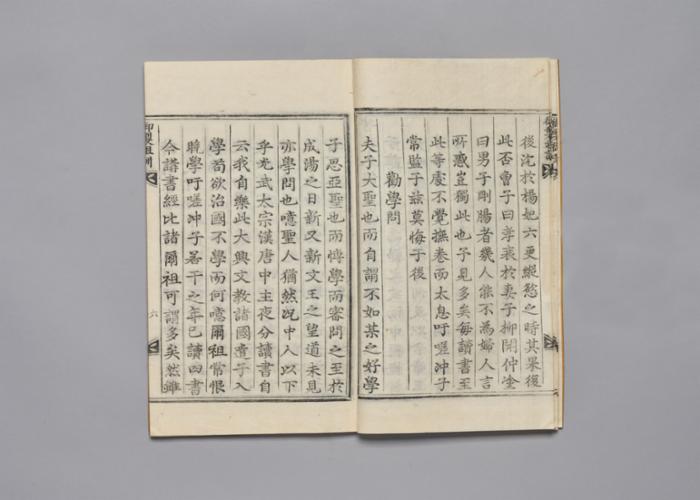 後沈於楊妃六更縱慾之時其果後
此否曾子曰孝衰於妻子柳開仲塗
曰男子剛腸者幾人能不為婦人言
所惑豈獨此也予見多矣每讀書至
此等處不覺撫卷而太息吁嗟沖子
常監于玆莫悔于後
勸學問
夫子大聖也而自謂不如某之好學
子思亞聖也而博學而審問之至於
成湯之日新又新文王之望道未見
亦學問也噫聖人猶然況中人以下
乎光武太宗漢唐中主夜分讀書自
云我自樂此大興文教諸國遣子入
學苟欲治國不學而何噫爾祖常恨
晚學吁嗟沖子若干之年已讀四書
今講書經比諸爾祖可謂多矣然雖
御製祖訓
六